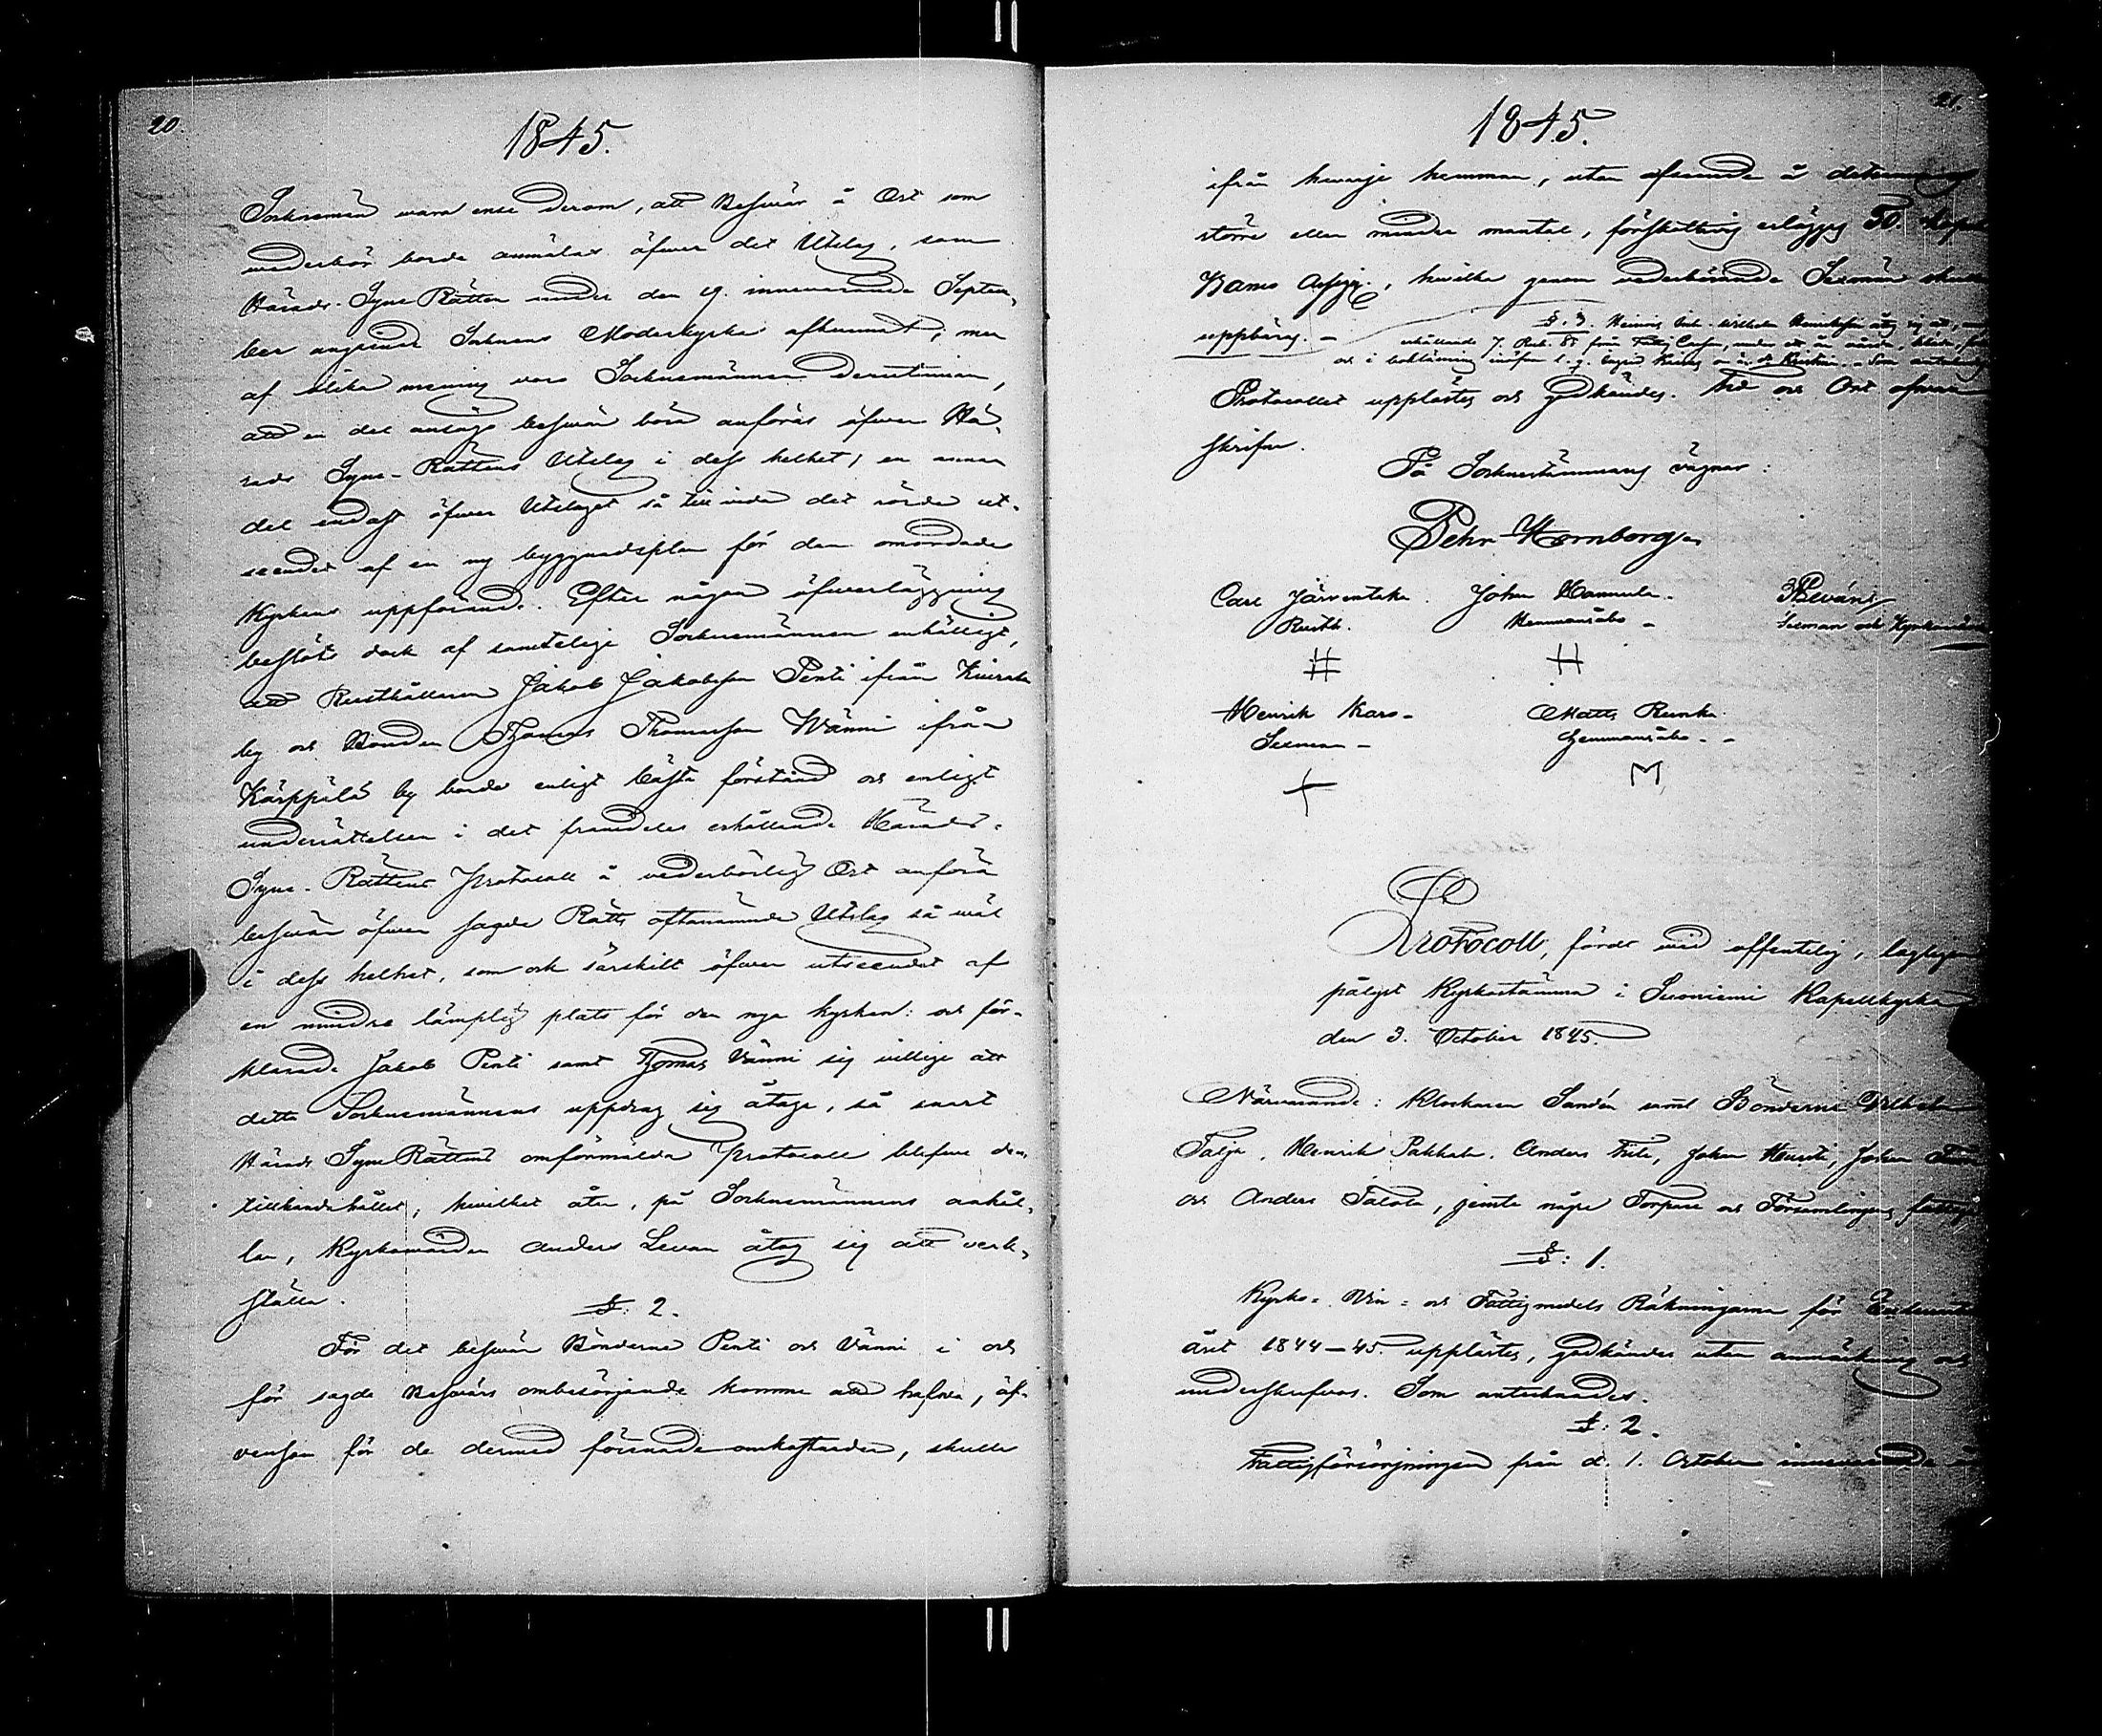 20.
1845.
Socknemän vara ense derom, att Besvär å Ort som
wederbör borde anmälas öfwer det Utslag, som
Härads-Syne Rätten under den 19. innewarande Septem,
ber angående Socknens Moderkyrka afkunnat; men
af olika mening voro Socknemännen derutinnan,
att en del ansågo besvär böra anföras öfwer Hä-
rads Syne-Rättens Utslag i dess helhet, en annan
del endast öfwer Utslaget så till vida det rörde ut-
seendet af en ny byggnadsplan för den omordade
Kyrkans uppförande. Efter någon öfwerläggning
beslöts dock af samtelige Socknemännen enhälligt,
att Rusthållaren Jakob Jakobsson Penti ifrån
by och Bonden Thomas Thomasson Wänni ifrån
Karppila by borde enligt bästa förstånd och enligt
underrättelsen i det framdeles erhållande Härads-
Syne-Rättens Protocoll å vederbörlig Ort anföra
besvär öfwer sagde Rätts oftanämnde Utslag så wäl
i dess helhet, som ock särskilt öfwer utseendet af
en mindre lämplig plats för den nya kyrkan: och för-
klarade Jakob Penti samt Thomas Vänni sig villige att
detta Socknemännens uppdrag sig åtaga, så snart
Härads Syne Rättens omförmälda Protocoll blefve dem
tillhandahållet, hwilket åter, på Socknemännens anhål-
lan, Kyrkowärden Anders Levan åtog sig att verk-
ställa.
§: 2.
För det besvär Bönderne Penti och Vänni i och
för sagde Besvärs ombesörjande komme att hafva, äf-
vensom för de dermed förenade omkostnader, skulle
21.
1845.
ifrån hwarje hemman, utan afseende å
större eller mindre mantal, förskottsvis erläggas 50. Kopek
Banco Assign., hwilka genom wederbörande Sexmän skulle
uppbäras. -
§. 3
Protocollet upplästes och godkändes. Tid och Ort ofwan
skrifne.
På Sockenstämmans vägnar:
Pehr Hornborg
Carl Järventaka. Johan Hannula. Levánd
Rusth. Hemmansåbo - Sexman och Kyrkovärd
Henrik Karo - Matts Runka.
Sexman - Hemmansåbo. -
M
Protocoll, fördt wid offentelig, lagligen
pålyst Kyrkostämma i Suoniemi Kapellkyrka
den 3. October 1845.
Närwarande: Klockaren Sandén samt Bönderne Wilhelm
Talja, Henrik Pakkala, Anders Fili, Johan Heurti, Johan
och Anders Talola, jemte några Torpare och Församlingens fattige
§: 1.
Kyrko- Vin- och Fattigmedels Räkningarne för Ecclesiastik
året 1844-45. upplästes, godkändes utan anmärkning och
underskrefvos. Som antecknades.
§: 2.
Fattigförsörjningen från d. 1. October innevarande år